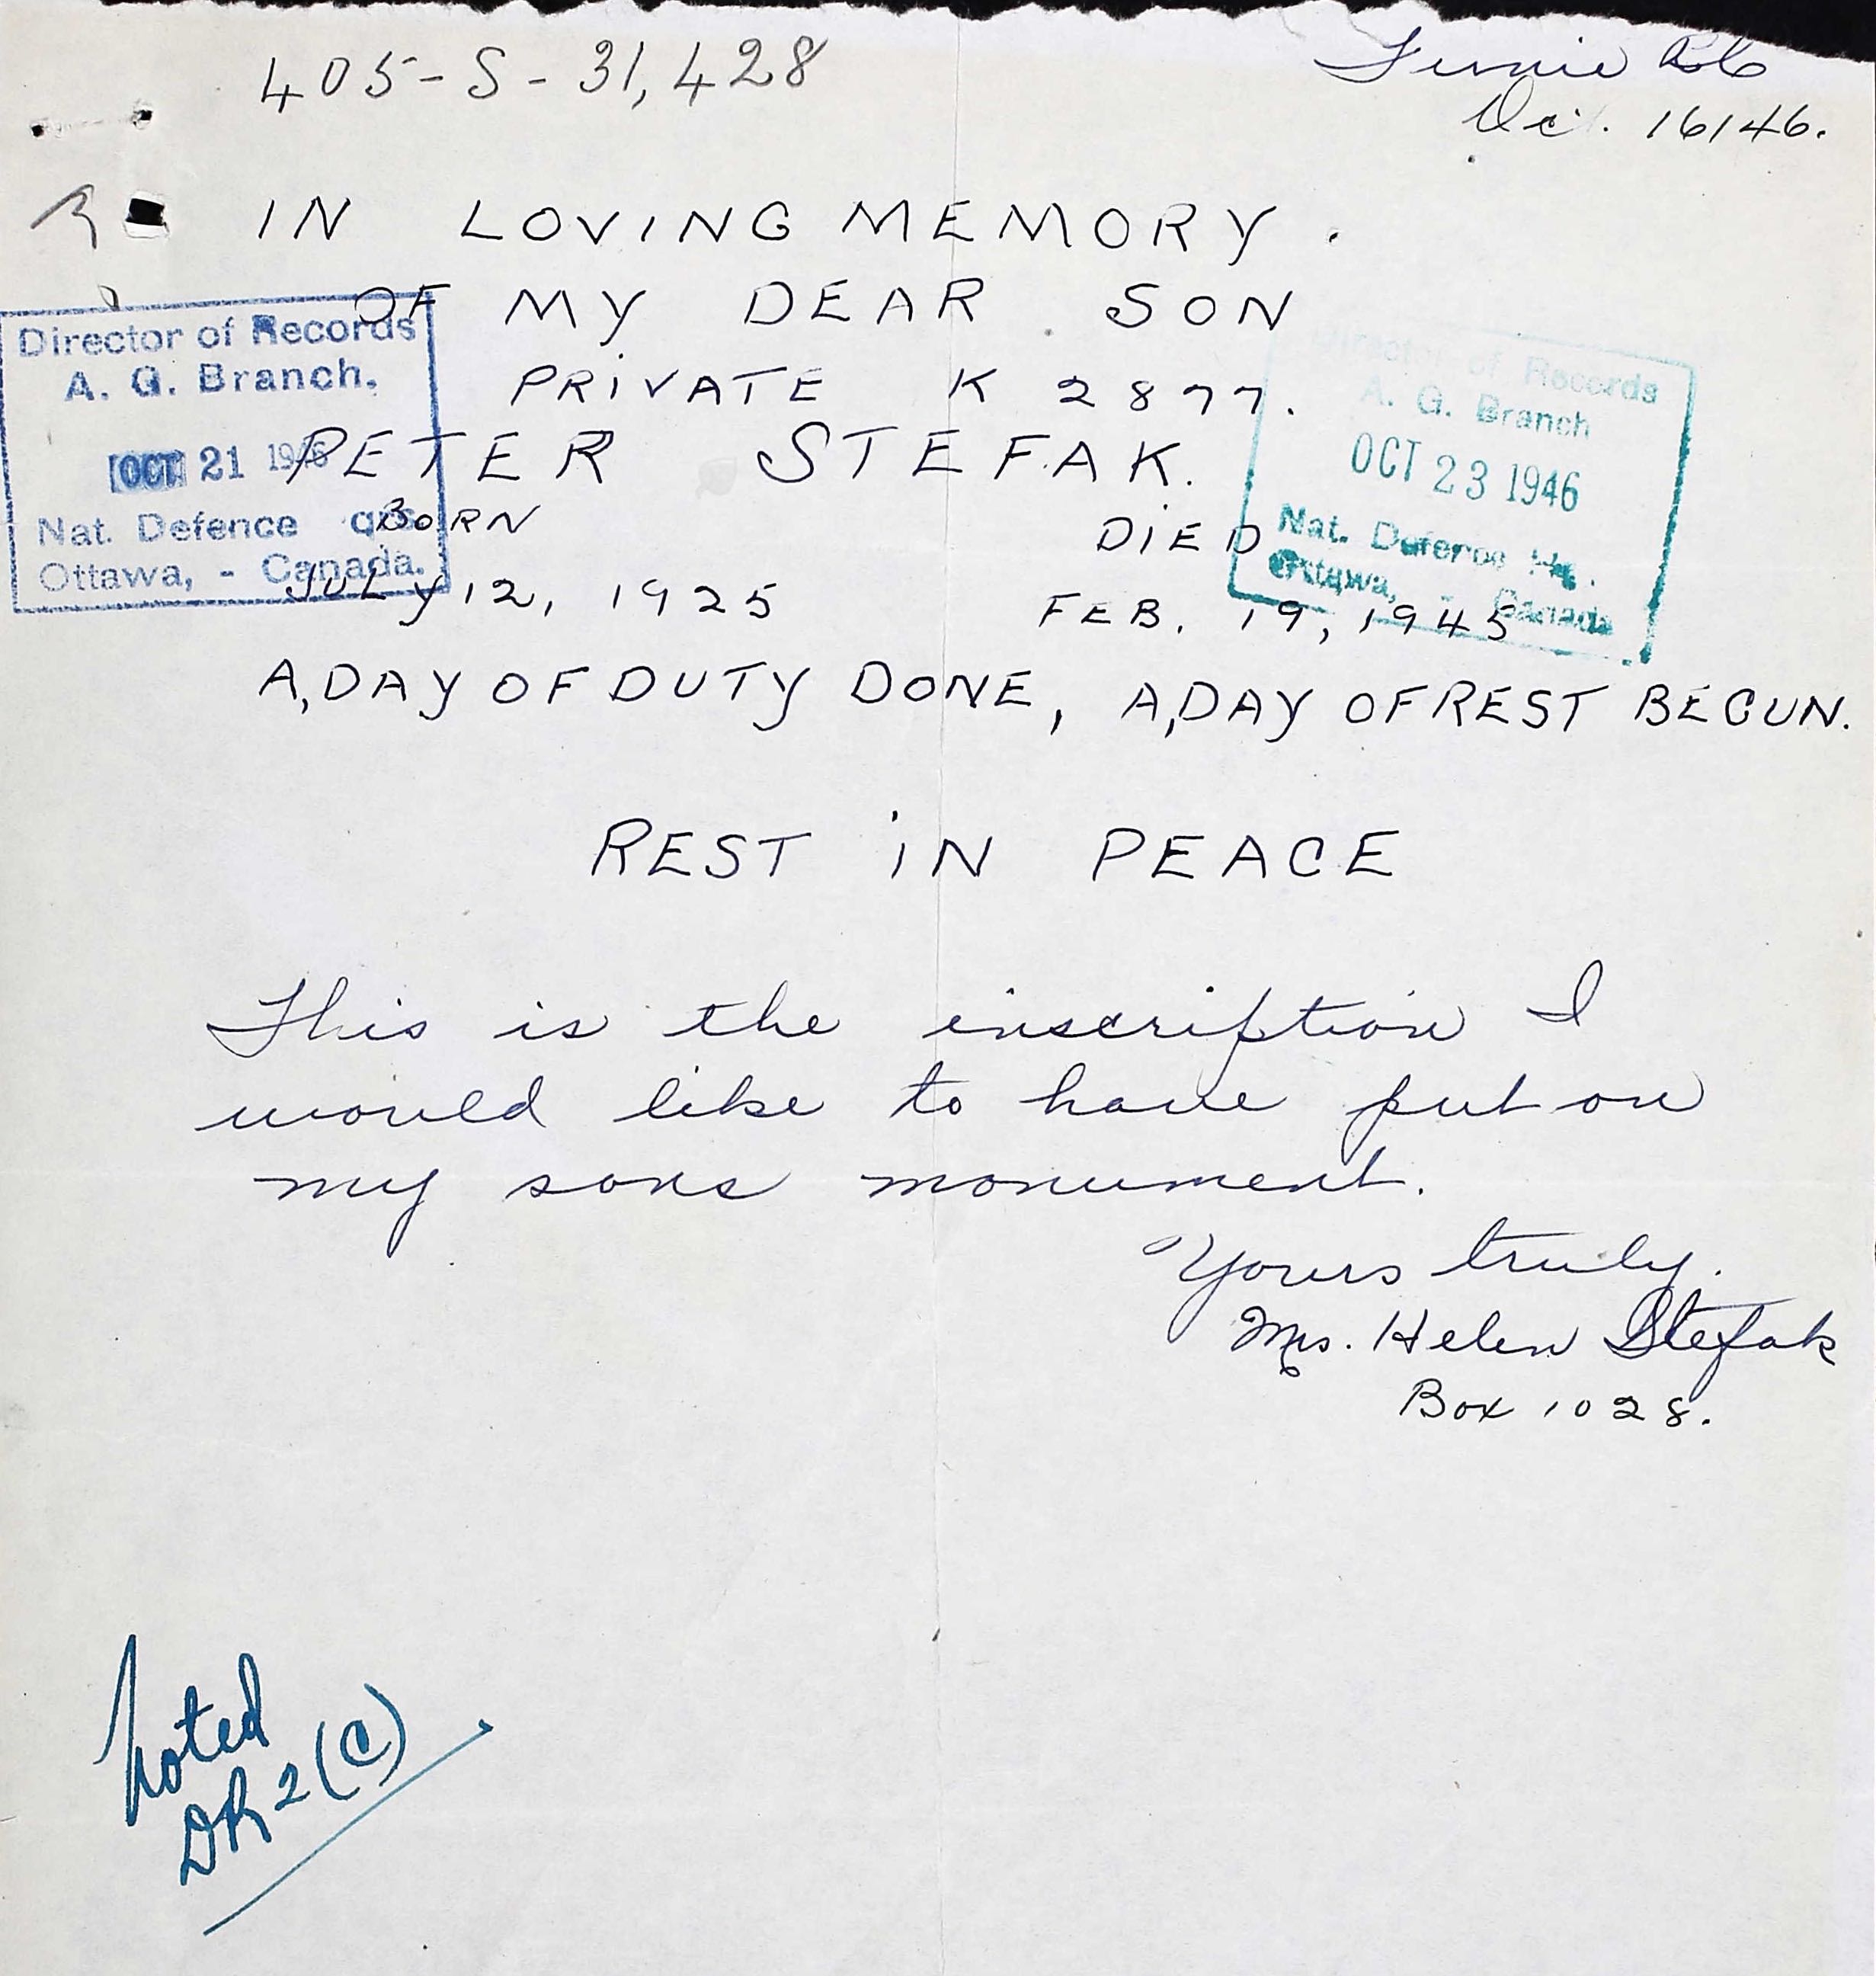 405-S-31,428
Fernie BC
Oct. 16/46.
IN LOVING MEMORY.
OF MY DEAR SON
PRIVATE K 2877.
PETER STEFAK.
BORN DIED
JULY 12, 1925 FEB. 19, 1945
A, DAY OF DUTY DONE, A, DAY OF REST BEGUN.
REST IN PEACE
Director of Records
A. G. Branch.
OCT 21 1946
Nat. Defence
Ottawa, - Canada.
Director of Records
A. G. Branch
OCT 23 1946
Nat. Defence Hq.
Ottawa, - Canada
This is the inscription I
would like to have put on
my sons monument.
Yours truly.
Mrs. Helen Stefak
Box 1028.
noted
DR2(C)